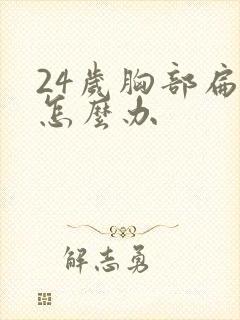 24歲胸部扁
怎麼办
解志勇